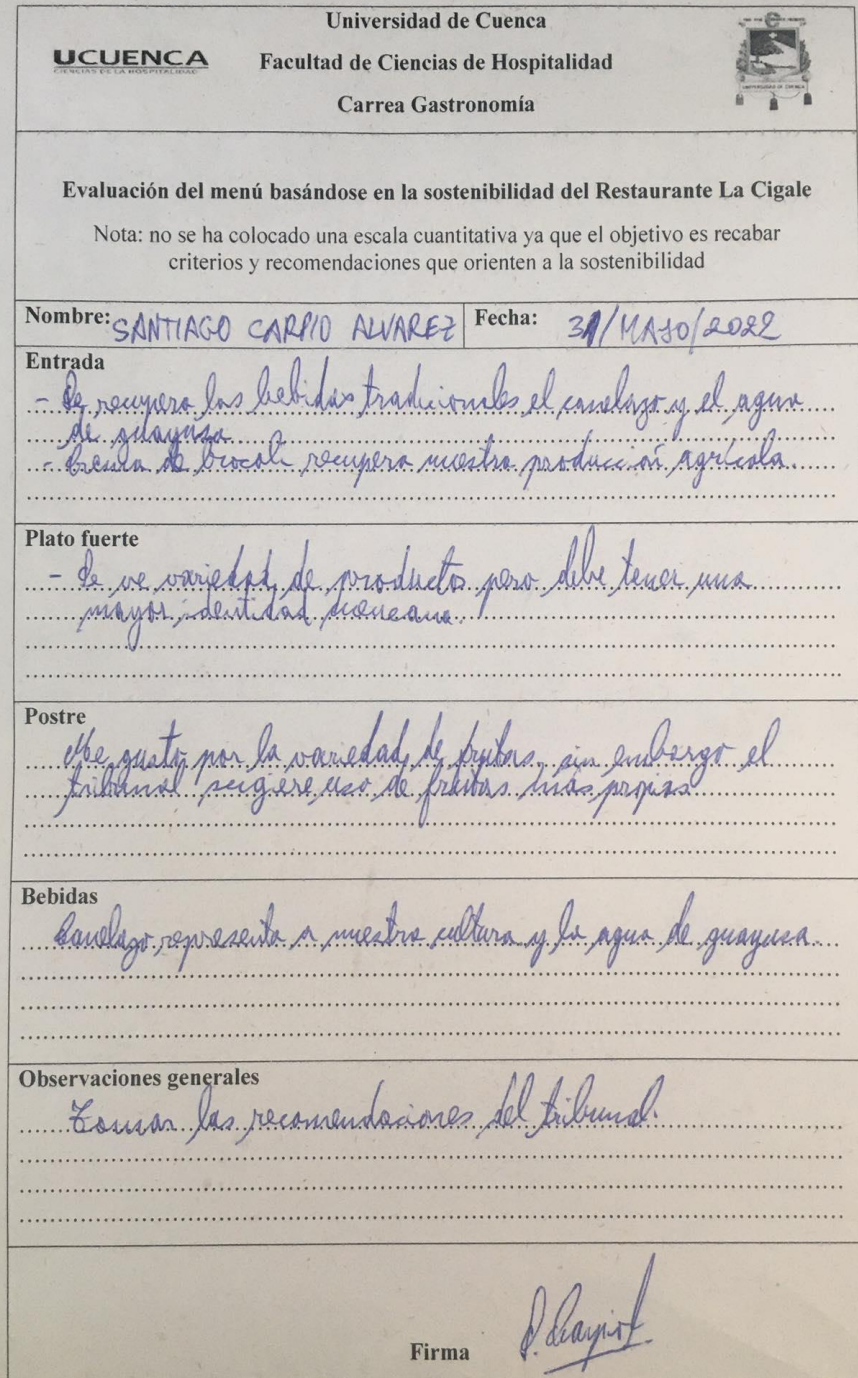 Universidad de Cuenca
UCUENCA
CIENCIAS DE LA HOSPITALIDAD
Facultad de Ciencias de Hospitalidad
Carrea Gastronomía
UNIVERSIDAD DE CUENCA
Evaluación del menú basándose en la sostenibilidad del Restaurante La Cigale
Nota: no se ha colocado una escala cuantitativa ya que el objetivo es recabar
criterios y recomendaciones que orienten a la sostenibilidad
Nombre: SANTIAGO CARPIO ALVAREZ Fecha: 31/MAYO/2022
Entrada
- Se recupera las bebidas tradicionales el canelazo y el agua
de guayusa
- Crema de brocoli recupera nuestra producción agrícola.
Plato fuerte
- Se ve variedad de productos pero debe tener una
mayor identidad cuencana.
Postre
Me gusto por la variedad de frutas, sin embargo el
tribunal sugiere uso de frutas más propias
Bebidas
Canelazo representa a nuestra cultura y la agua de guayusa
Observaciones generales
Tomar las recomendaciones del tribunal.
Firma